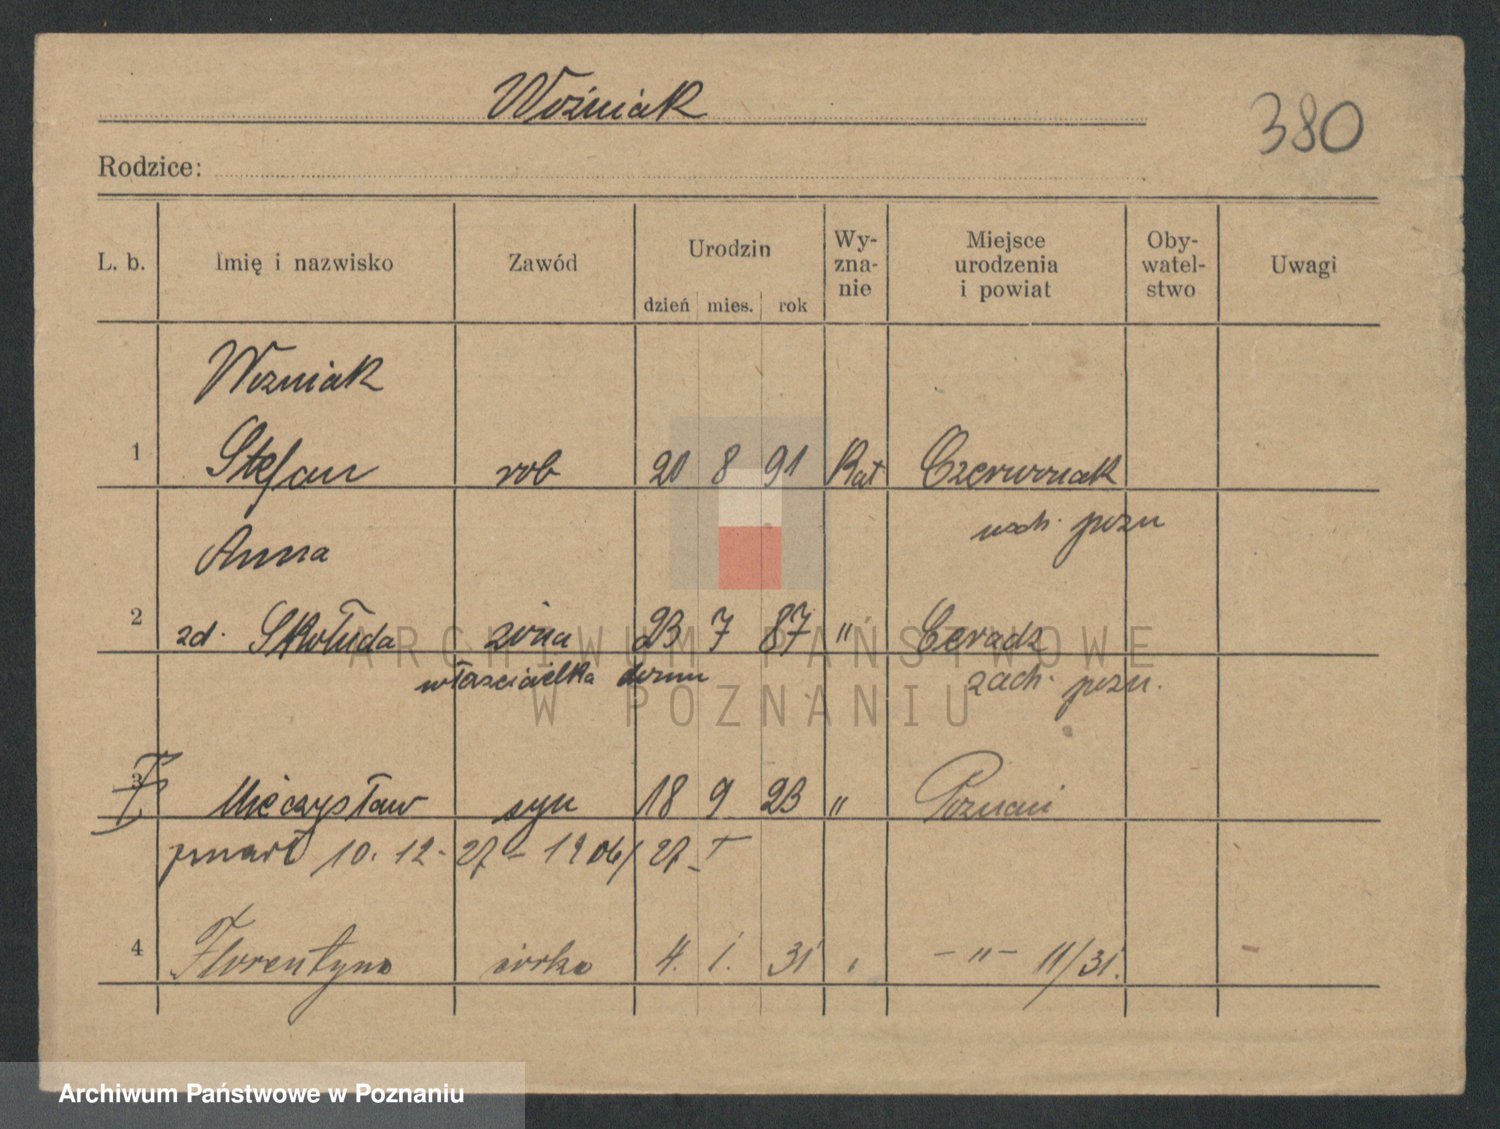 Woźniak
380
Rodzice:
L. b. Imię i nazwisko Zawód Urodzin dzień mies. rok Wy-zna-nie Miejsce urodzenia i powiat Oby-watel-stwo Uwagi
Wozniak
1 Stefan rob 20 8 91 Kat Czerwonak
wsch. pozn
Anna
2 zd. Skołuda żona 23 7 87 " Ceradz
właścicielka domu zach. pozn.
3 Mieczysław syn 18 9 23 " Poznań
zmarł 10. 12. 27 - 1906/27
4 Florentyna córka 4. 1. 31 " - " - 11/31.
ARCHIWUM PAŃSTWOWE
W POZNANIU
Archiwum Państwowe w Poznaniu